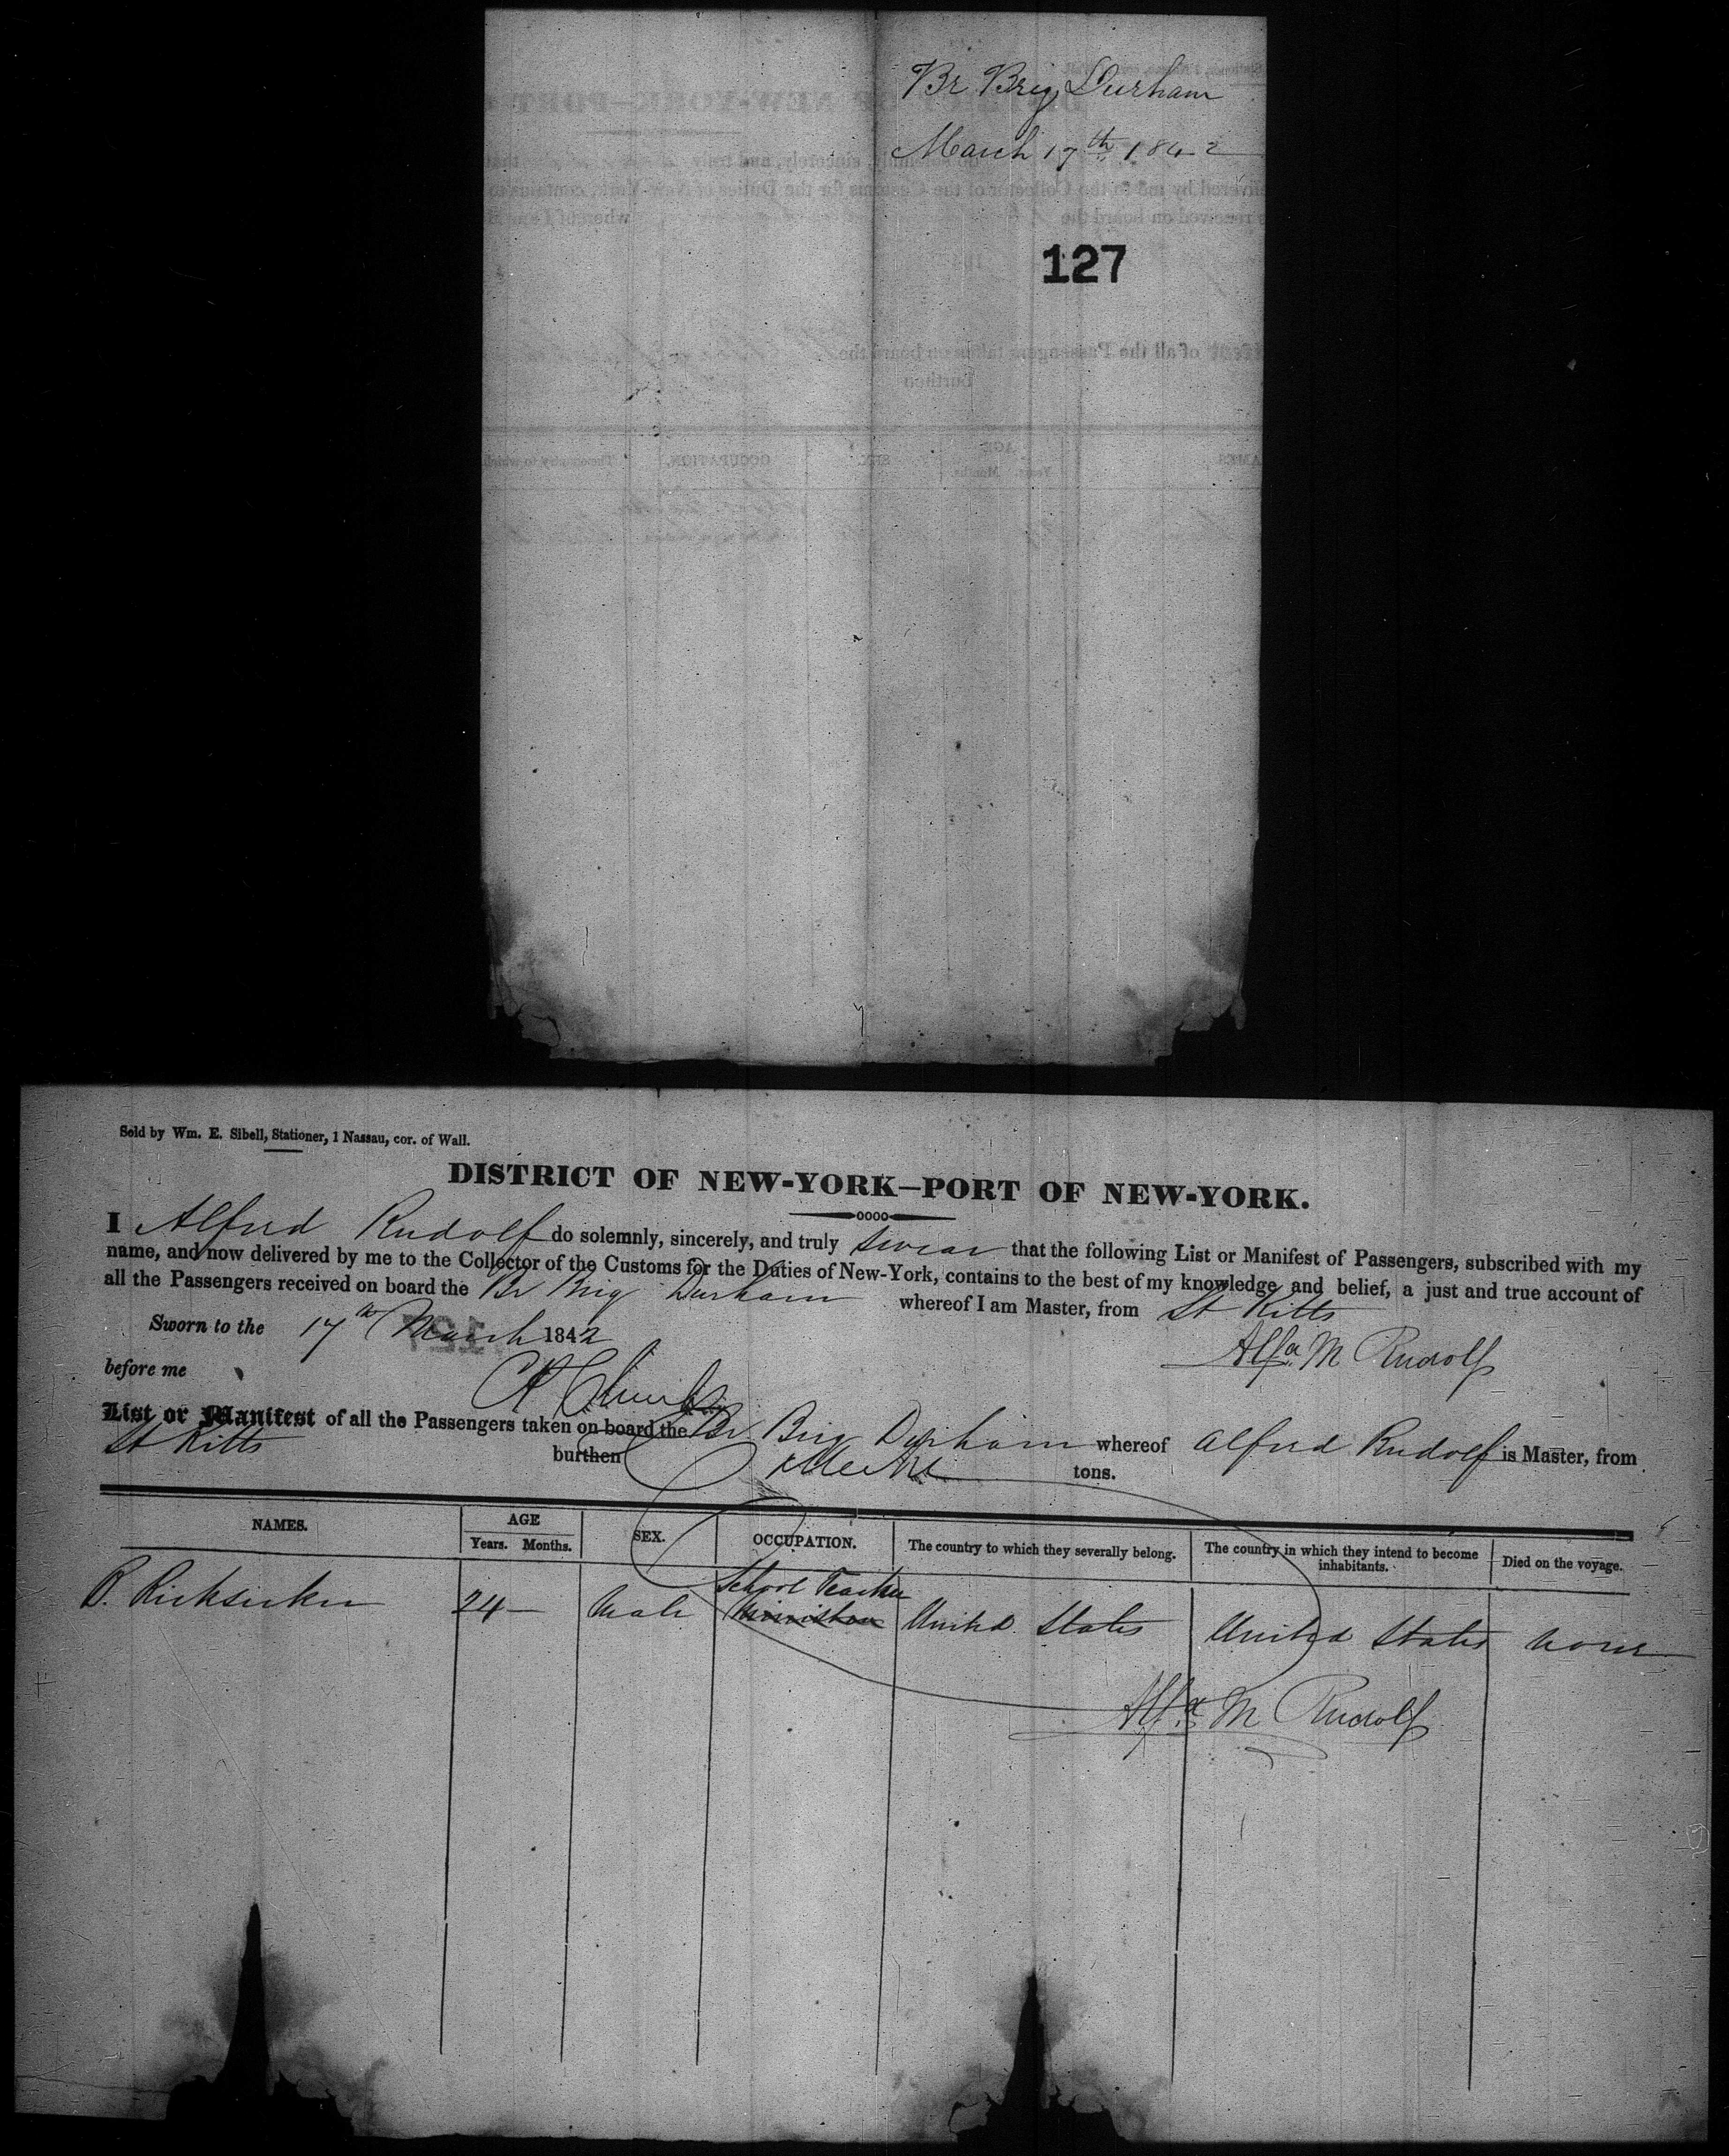 Br Brig Durham
March 17th 1842
127
Sold by Wm. E. Sibell, Stationer, 1 Nassau, cor. of Wall.
DISTRICT OF NEW-YORK—PORT OF NEW-YORK.
I Alfred Rudolf do solemnly, sincerely, and truly swear that the following List or Manifest of Passengers, subscribed with my
name, and now delivered by me to the Collector of the Customs for the Duties of New-York, contains to the best of my knowledge and belief, a just and true account of
all the Passengers received on board the Br Brig Durham whereof I am Master, from St Kitts
Sworn to the 17th March 1842
Alfd. M Rudolf
before me
List or Manifest of all the Passengers taken on board the Br Brig Durham whereof Alfred Rudolf is Master, from
St Kitts burthen tons.
NAMES. AGE Years. Months. SEX. OCCUPATION. The country to which they severally belong. The country in which they intend to become inhabitants. Died on the voyage.
School Teacher
R. Ricksecker 24 — Male United States United States none
Alfd. M Rudolf